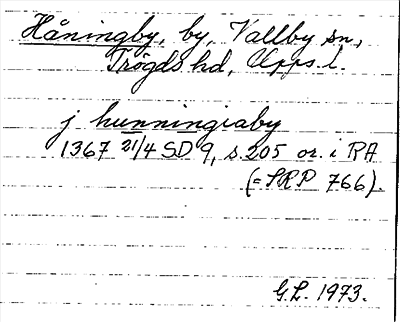 Håningby, by, Vallby sn,
Trögds hd, Upps. l.
j hunningiaby
1367 21/4 SD 9, s 205 or. i RA
(= SRP 766).
G.L. 1973.